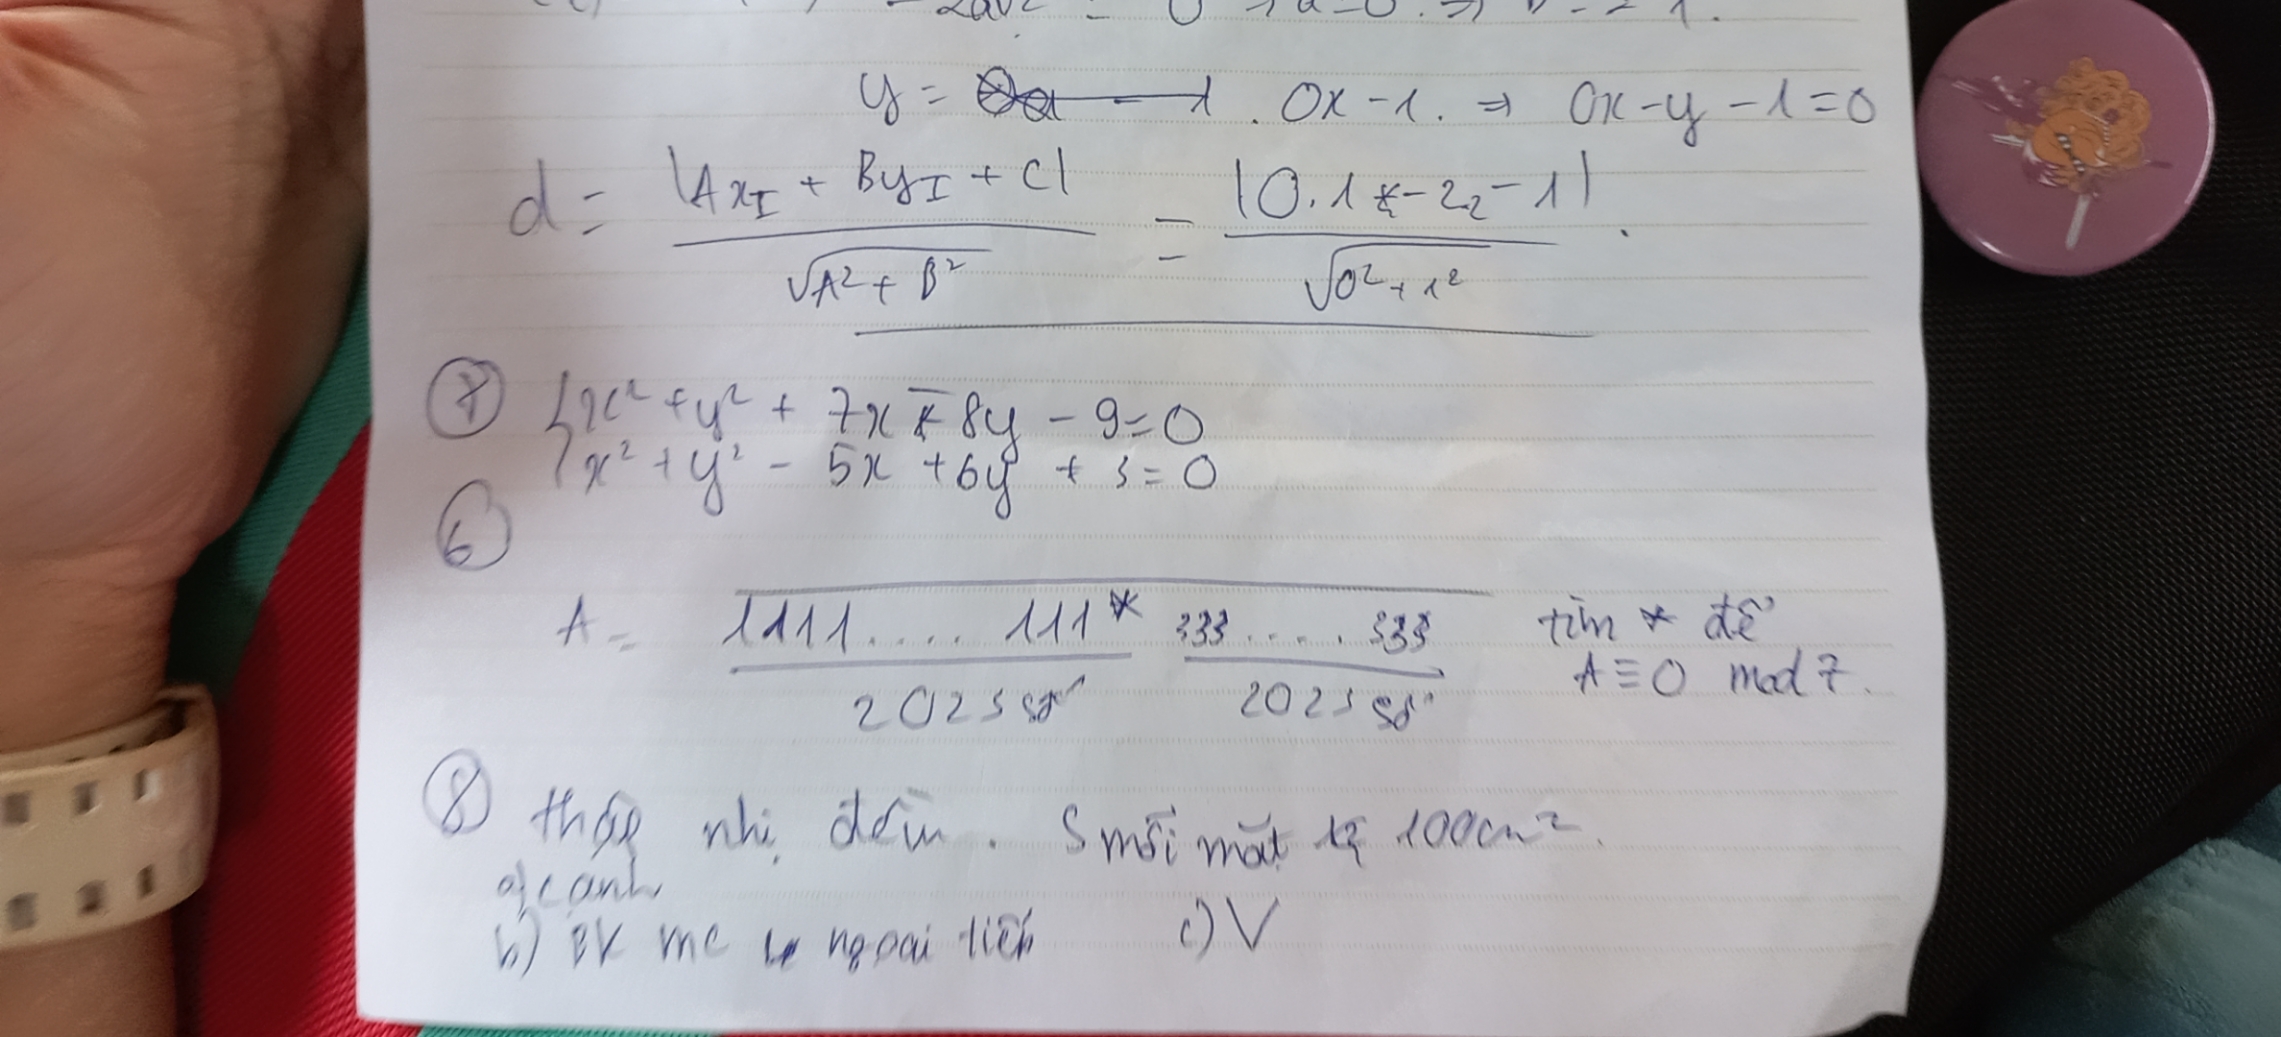 y = 0x - 1. ⇒ 0x - y - 1 = 0
d = |AxI + ByI + C| / √(A² + B²) = |0.1 - 2 - 1| / √(0² + 1²) .
⑦ { x² + y² + 7x - 8y - 9 = 0
x² + y² - 5x + 6y + 3 = 0
⑥
A = 1111.....111 * 333.....333 tìm * để
2023 số 2023 số A ≡ 0 mod 7.
⑧ thập nhị diện. S mỗi mặt là 100cm².
a) cạnh
b) BK mc ngoại tiếp c) V